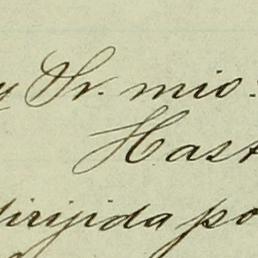 y Sr. mio:
Hast
dirijida po